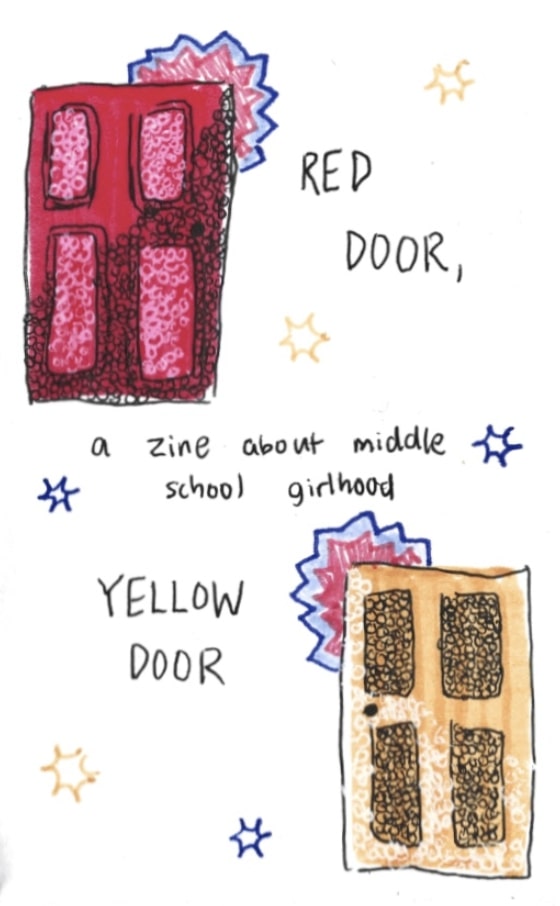 RED
DOOR,
a zine about middle
school girlhood
YELLOW
DOOR